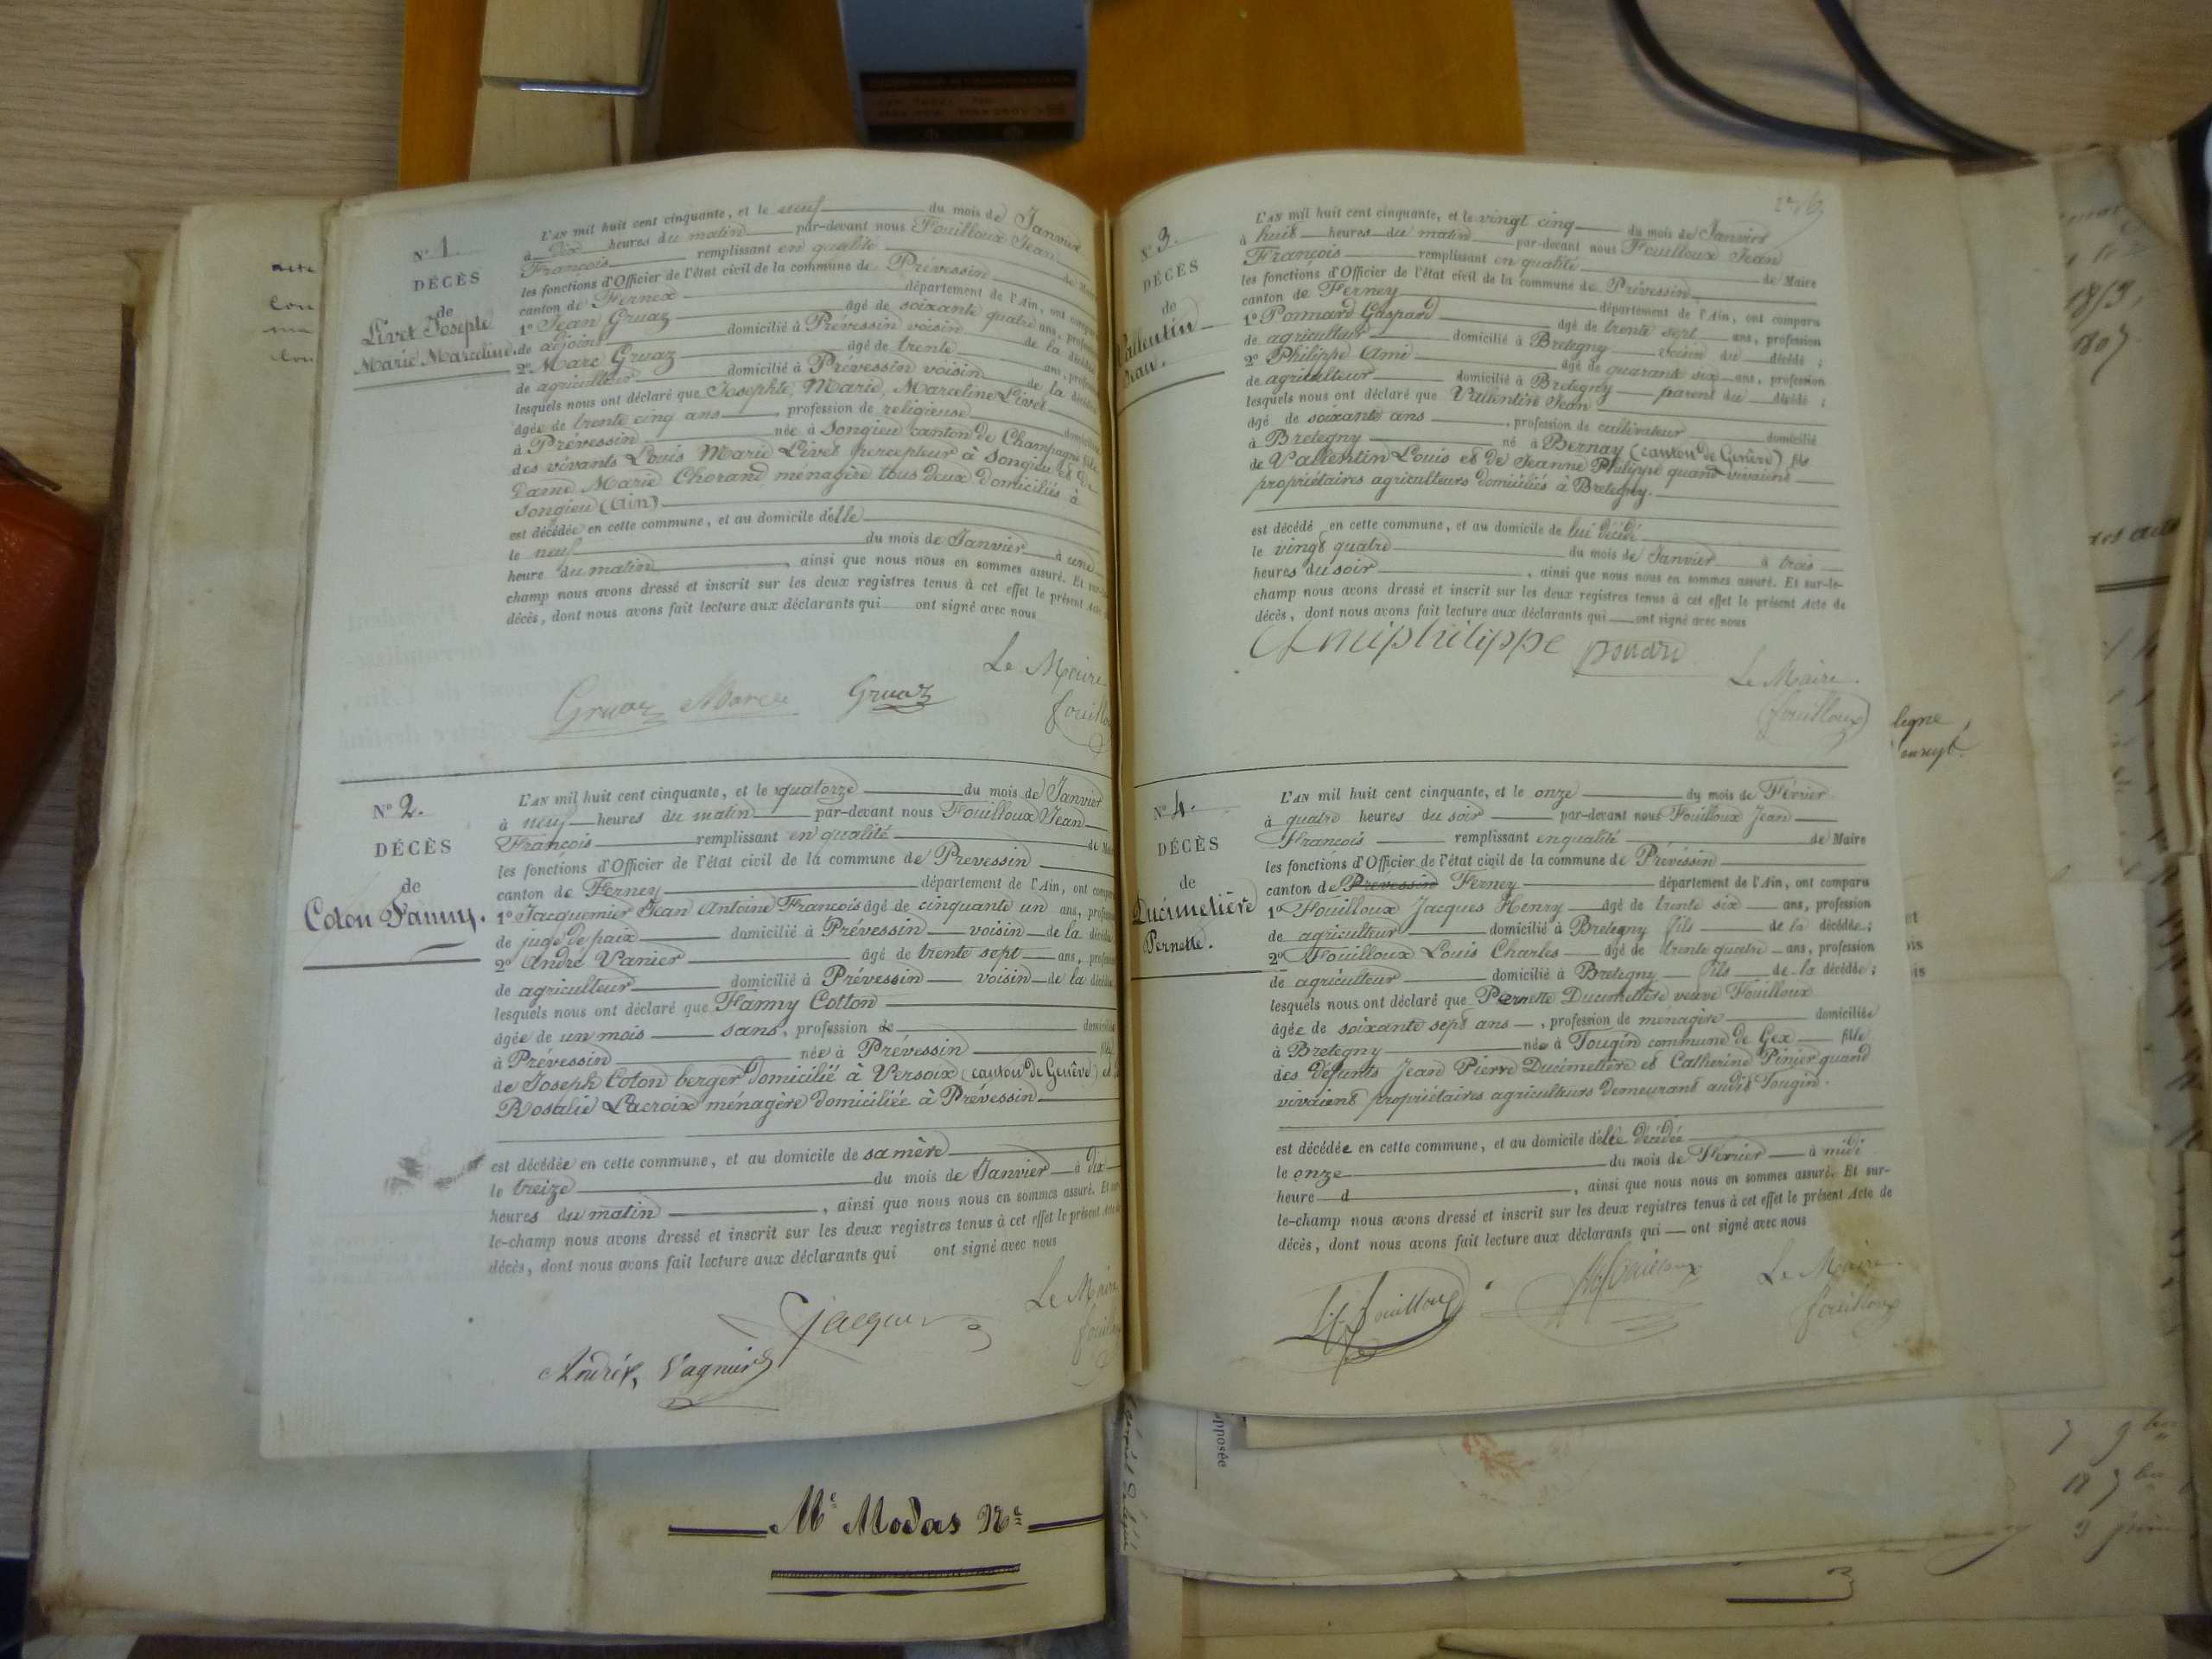 N° 1.
DÉCÈS
de
Livet Josephte
Marie Marceline.
L'AN mil huit cent cinquante, et le neuf du mois de Janvier
à dix heures du matin par-devant nous Fouilloux Jean
François remplissant en qualité de Maire
les fonctions d'Officier de l'état civil de la commune de Prévessin
canton de Fernex département de l'Ain, ont comparu
1° Jean Gruaz âgé de soixante quatre ans, profession
de adjoint domicilié à Prévessin voisin de la décédée
2° Marc Gruaz âgé de trente ans, profession
de agriculteur domicilié à Prévessin voisin de la décédée
lesquels nous ont déclaré que Josephte, Marie, Marceline Livet
âgée de trente cinq ans, profession de religieuse domiciliée
à Prévessin née à Songieu canton de Champagne fille
des vivants Louis Marie Livet percepteur à Songieu et de
Dame Marie Chorand ménagère tous deux domiciliés à
Songieu (Ain)
est décédée en cette commune, et au domicile d'elle
le neuf du mois de Janvier à une
heure du matin, ainsi que nous nous en sommes assuré. Et sur-le-
champ nous avons dressé et inscrit sur les deux registres tenus à cet effet le présent Acte
décès, dont nous avons fait lecture aux déclarants qui ont signé avec nous
Le Maire
Gruaz Marc Gruaz fouilloux
N° 2.
DÉCÈS
de
Coton Fanny.
L'AN mil huit cent cinquante, et le quatorze du mois de Janvier
à neuf heures du matin par-devant nous Fouilloux Jean
François remplissant en qualité de Maire
les fonctions d'Officier de l'état civil de la commune de Prevessin
canton de Ferney département de l'Ain, ont comparu
1° Jacquemier Jean Antoine François âgé de cinquante un ans, profession
de juge de paix domicilié à Prévessin voisin de la décédée
2° André Vanier âgé de trente sept ans, profession
de agriculteur domicilié à Prévessin voisin de la décédée
lesquels nous ont déclaré que Fanny Cotton
âgée de un mois sans, profession de domiciliée
à Prévessin née à Prévessin fille
de Joseph Coton berger domicilié à Versoix (canton de Genêve) et de
Rosalie Lacroix ménagère domiciliée à Prévessin
est décédée en cette commune, et au domicile de sa mère
le treize du mois de Janvier à dix
heures du matin, ainsi que nous nous en sommes assuré. Et sur-
le-champ nous avons dressé et inscrit sur les deux registres tenus à cet effet le présent Acte
décès, dont nous avons fait lecture aux déclarants qui ont signé avec nous
Le Maire
fouilloux
André, Vagnier
Me Modas Nre
N° 3.
DÉCÈS
de
Vallentin
Jean.
L'AN mil huit cent cinquante, et le vingt cinq du mois de Janvier
à huit heures du matin par-devant nous Fouilloux Jean
François remplissant en qualité de Maire
les fonctions d'Officier de l'état civil de la commune de Prévessin
canton de Ferney département de l'Ain, ont comparu
1° Ponnard Gaspard âgé de trente sept ans, profession
de agriculteur domicilié à Bretegny voisin du décédé ;
2° Philippe Ami âgé de quarante six ans, profession
de agriculteur domicilié à Bretegny parent du décédé ;
lesquels nous ont déclaré que Vallentin Jean
âgé de soixante ans, profession de cultivateur domicilié
à Bretegny né à Bernay (canton de Genêve) fils
de Vallentin Louis et de Jeanne Philippe quand vivaient
propriétaires agriculteurs domiciliés à Bretegny.
est décédé en cette commune, et au domicile de lui décédé
le vingt quatre du mois de Janvier à trois
heures du soir, ainsi que nous nous en sommes assuré. Et sur-le-
champ nous avons dressé et inscrit sur les deux registres tenus à cet effet le présent Acte de
décès, dont nous avons fait lecture aux déclarants qui ont signé avec nous
Amiphilippe ponard
Le Maire.
fouilloux
N° 4.
DÉCÈS
de
Ducimetière
Pernette.
L'AN mil huit cent cinquante, et le onze du mois de Février
à quatre heures du soir par-devant nous Fouilloux Jean
François remplissant en qualité de Maire
les fonctions d'Officier de l'état civil de la commune de Prévessin
canton de Prevessin Ferney département de l'Ain, ont comparu
1° Fouilloux Jacques Henry âgé de trente six ans, profession
de agriculteur domicilié à Bretegny fils de la décédée ;
2° Fouilloux Louis Charles âgé de trente quatre ans, profession
de agriculteur domicilié à Bretegny fils de la décédée ;
lesquels nous ont déclaré que Pernette Ducimetière veuve Fouilloux
âgée de soixante sept ans, profession de ménagère domiciliée
à Bretegny née à Tougin commune de Gex fille
des défunts Jean Pierre Ducimetière et Catherine Pinier quand
vivaient propriétaires agriculteurs demeurant audit Tougin.
est décédée en cette commune, et au domicile d'elle décédée
le onze du mois de Février à midi
heure d, ainsi que nous nous en sommes assuré. Et sur-
le-champ nous avons dressé et inscrit sur les deux registres tenus à cet effet le présent Acte de
décès, dont nous avons fait lecture aux déclarants qui ont signé avec nous
Le Maire.
fouilloux
ligne
1813,
1807